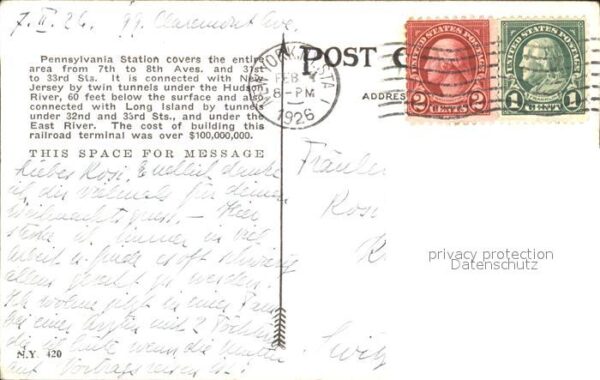 7. II. 26. 99 Claremont Ave.
Pennsylvania Station covers the entire
area from 7th to 8th Aves. and 31st
to 33rd Sts. It is connected with New
Jersey by twin tunnels under the Hudson
River, 60 feet below the surface and also
connected with Long Island by tunnels
under 32nd and 33rd Sts., and under the
East River. The cost of building this
railroad terminal was over $100,000,000.
THIS SPACE FOR MESSAGE
Lieber Rosi. Endlich danke
ich dir vielmals für deinen
Weihnachtsgruss. — Hier
stecke ich immer in viel
Arbeit u. finde es oft schwierig
allem gerecht zu werden.
Ich wohne jetzt in einer Fam.
bei einer Ärztin mit 2 Töchtern
die ich hüte wenn die Mutter
auf Vortragsreisen ist!
N.Y. 420
POST C
ADDRES
NEW YORK, N.Y. STA. I
FEB 7
8-PM
1926
UNITED STATES POSTAGE
2 CENTS 2
UNITED STATES POSTAGE
1 CENT 1
Fräulei
Rosi
privacy protection
Datenschutz